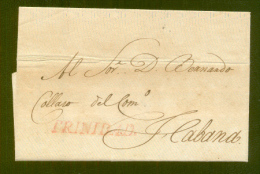 Al Sor. D. Bernardo
Collaso del Como.
TRINIDAD.
Habana